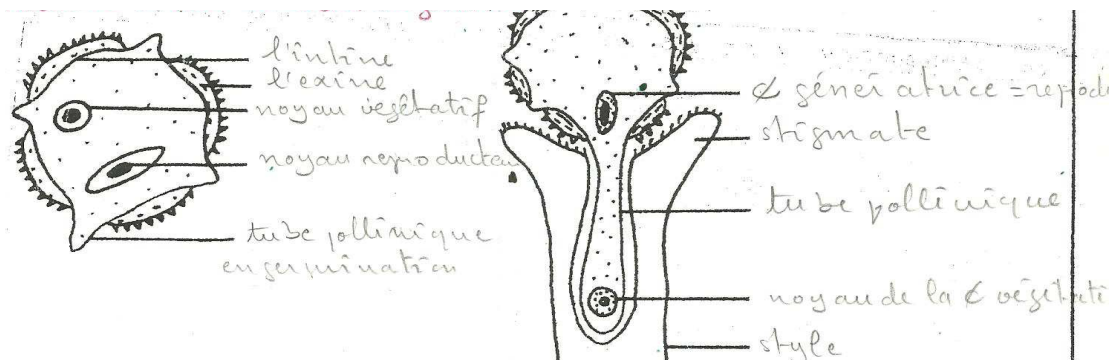 l'intine
l'exine
noyau végétatif
noyau reproducteu
tube pollinique
en germination
¢ génératrice = reprodu
stigmate
tube pollinique
noyau de la ¢ végétati
style